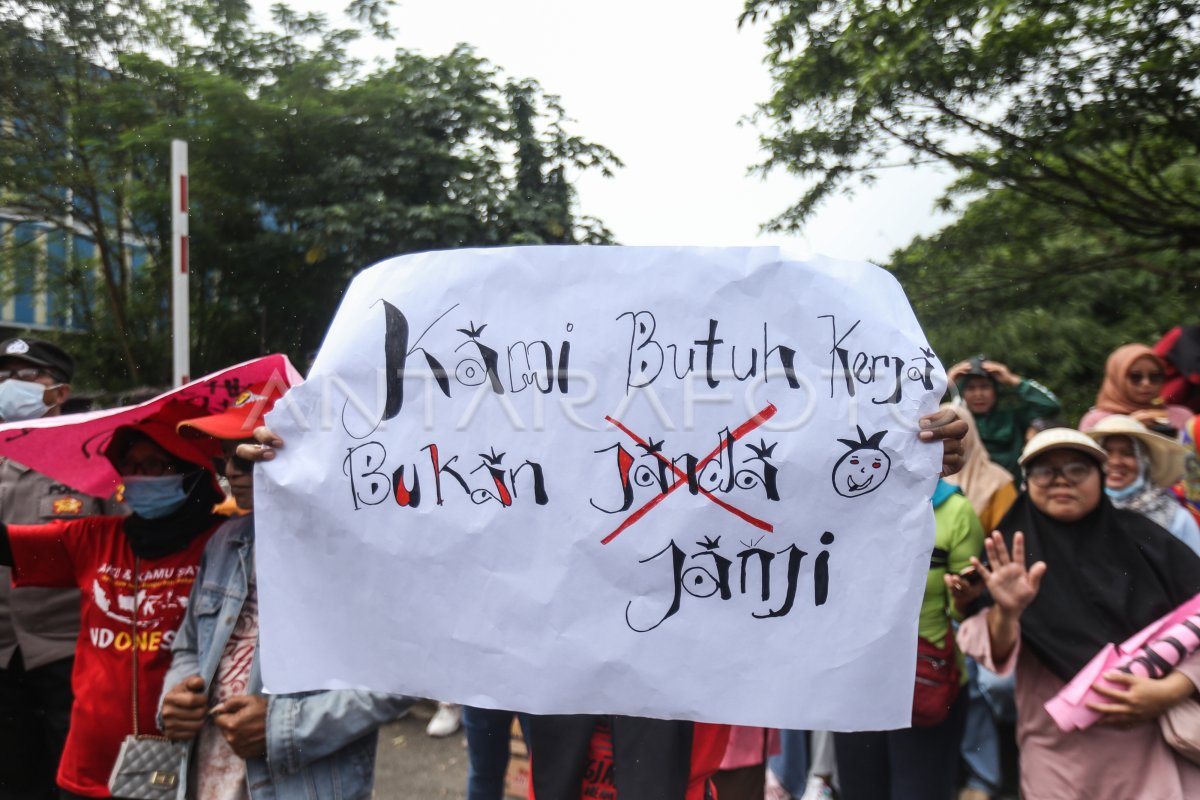 Kami Butuh Kerja
Bukan Janda
Janji
ANTARAFOTO
NDONES